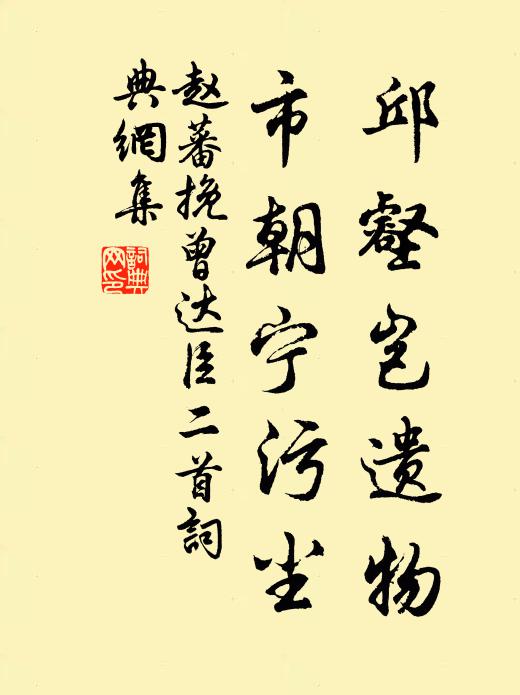 邱壑岂遗物
市朝宁污尘
赵蕃挽曾达臣二首詞
典網集
詞典
网印